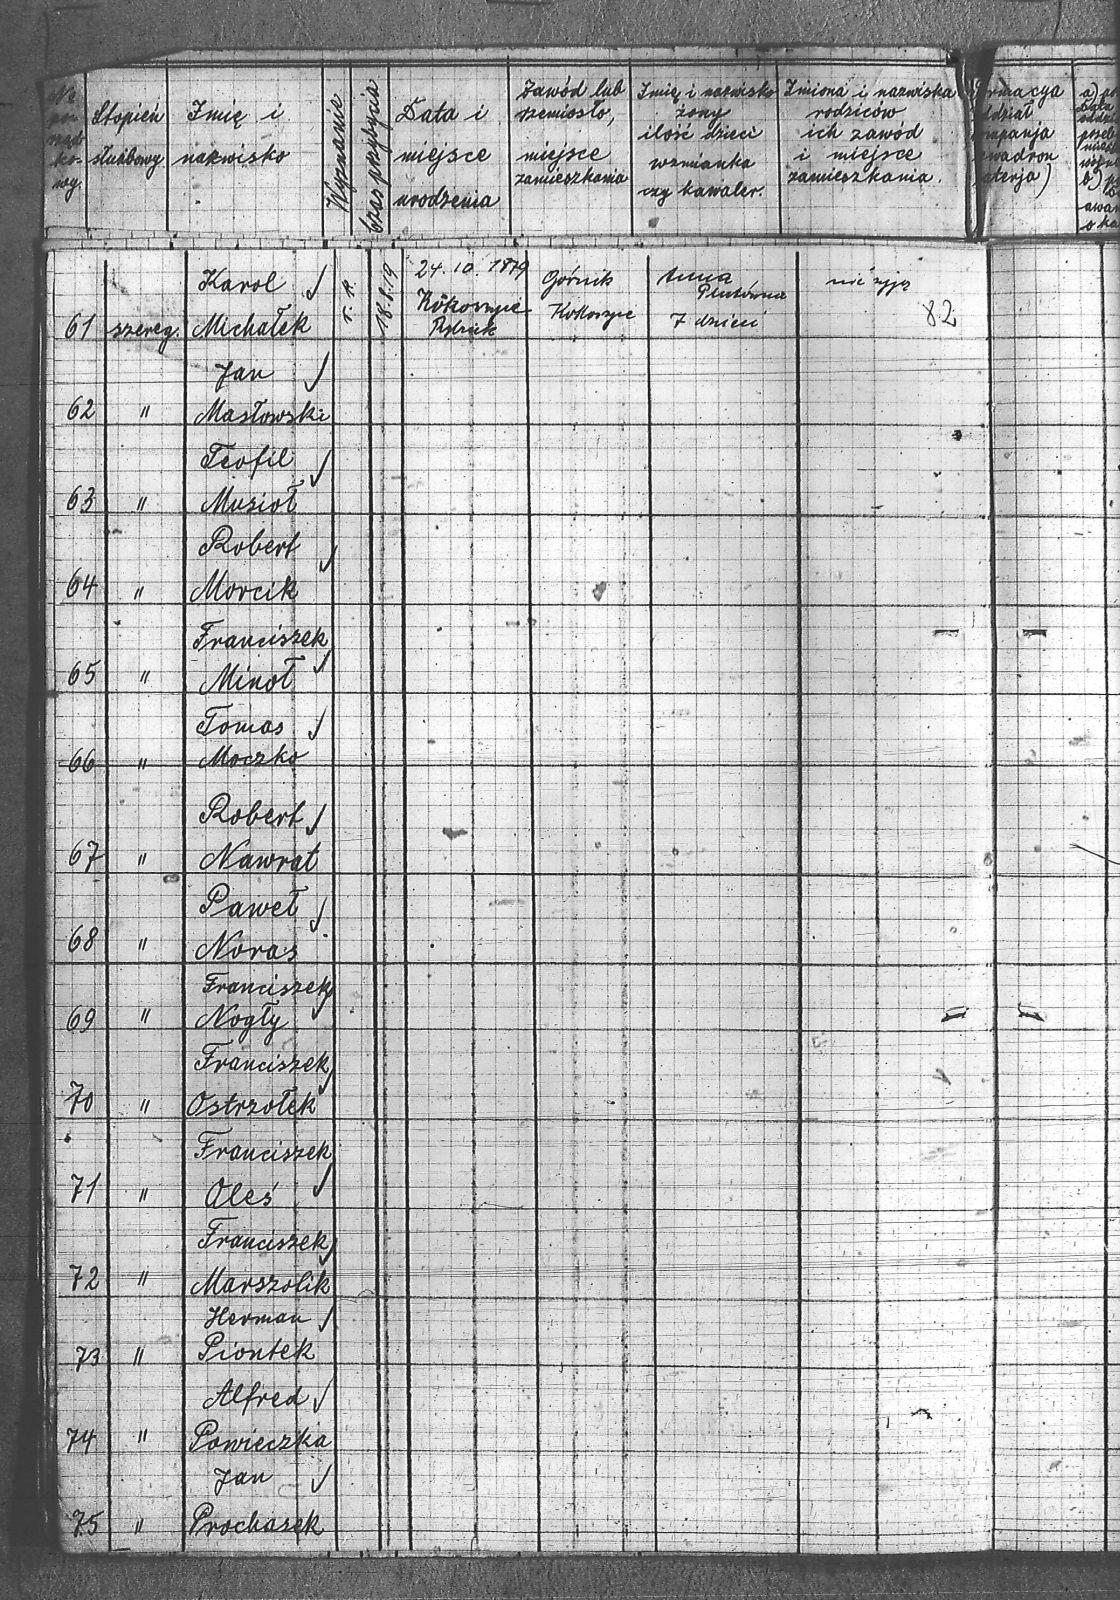 Stopień służbowy
Imię i nazwisko
Wyznanie
Czas przybycia
Data i miejsce urodzenia
Zawód lub rzemiosło, miejsce zamieszkania
Imię i nazwisko żony ilość dzieci wzmianka czy kawaler.
Imiona i nazwiska rodziców ich zawód i miejsce zamieszkania.
61 szereg. Karol Michałek r. k. 18.8.19 24.10.1879 Kokoszyce Rybnik Górnik Kokoszyc Anna 7 dzieci nie żyją 82
62 " Jan Masłowski
63 " Teofil Musioł
64 " Robert Morcik
65 " Franciszek Minoł
66 " Tomas Moczko
67 " Robert Nawrat
68 " Paweł Noras
69 " Franciszek Nogły
70 " Franciszek Ostrzołek
71 " Franciszek Oleś
72 " Franciszek Marszolik
73 " Herman Piontek
74 " Alfred Powieczka
75 " Jan Prochasek